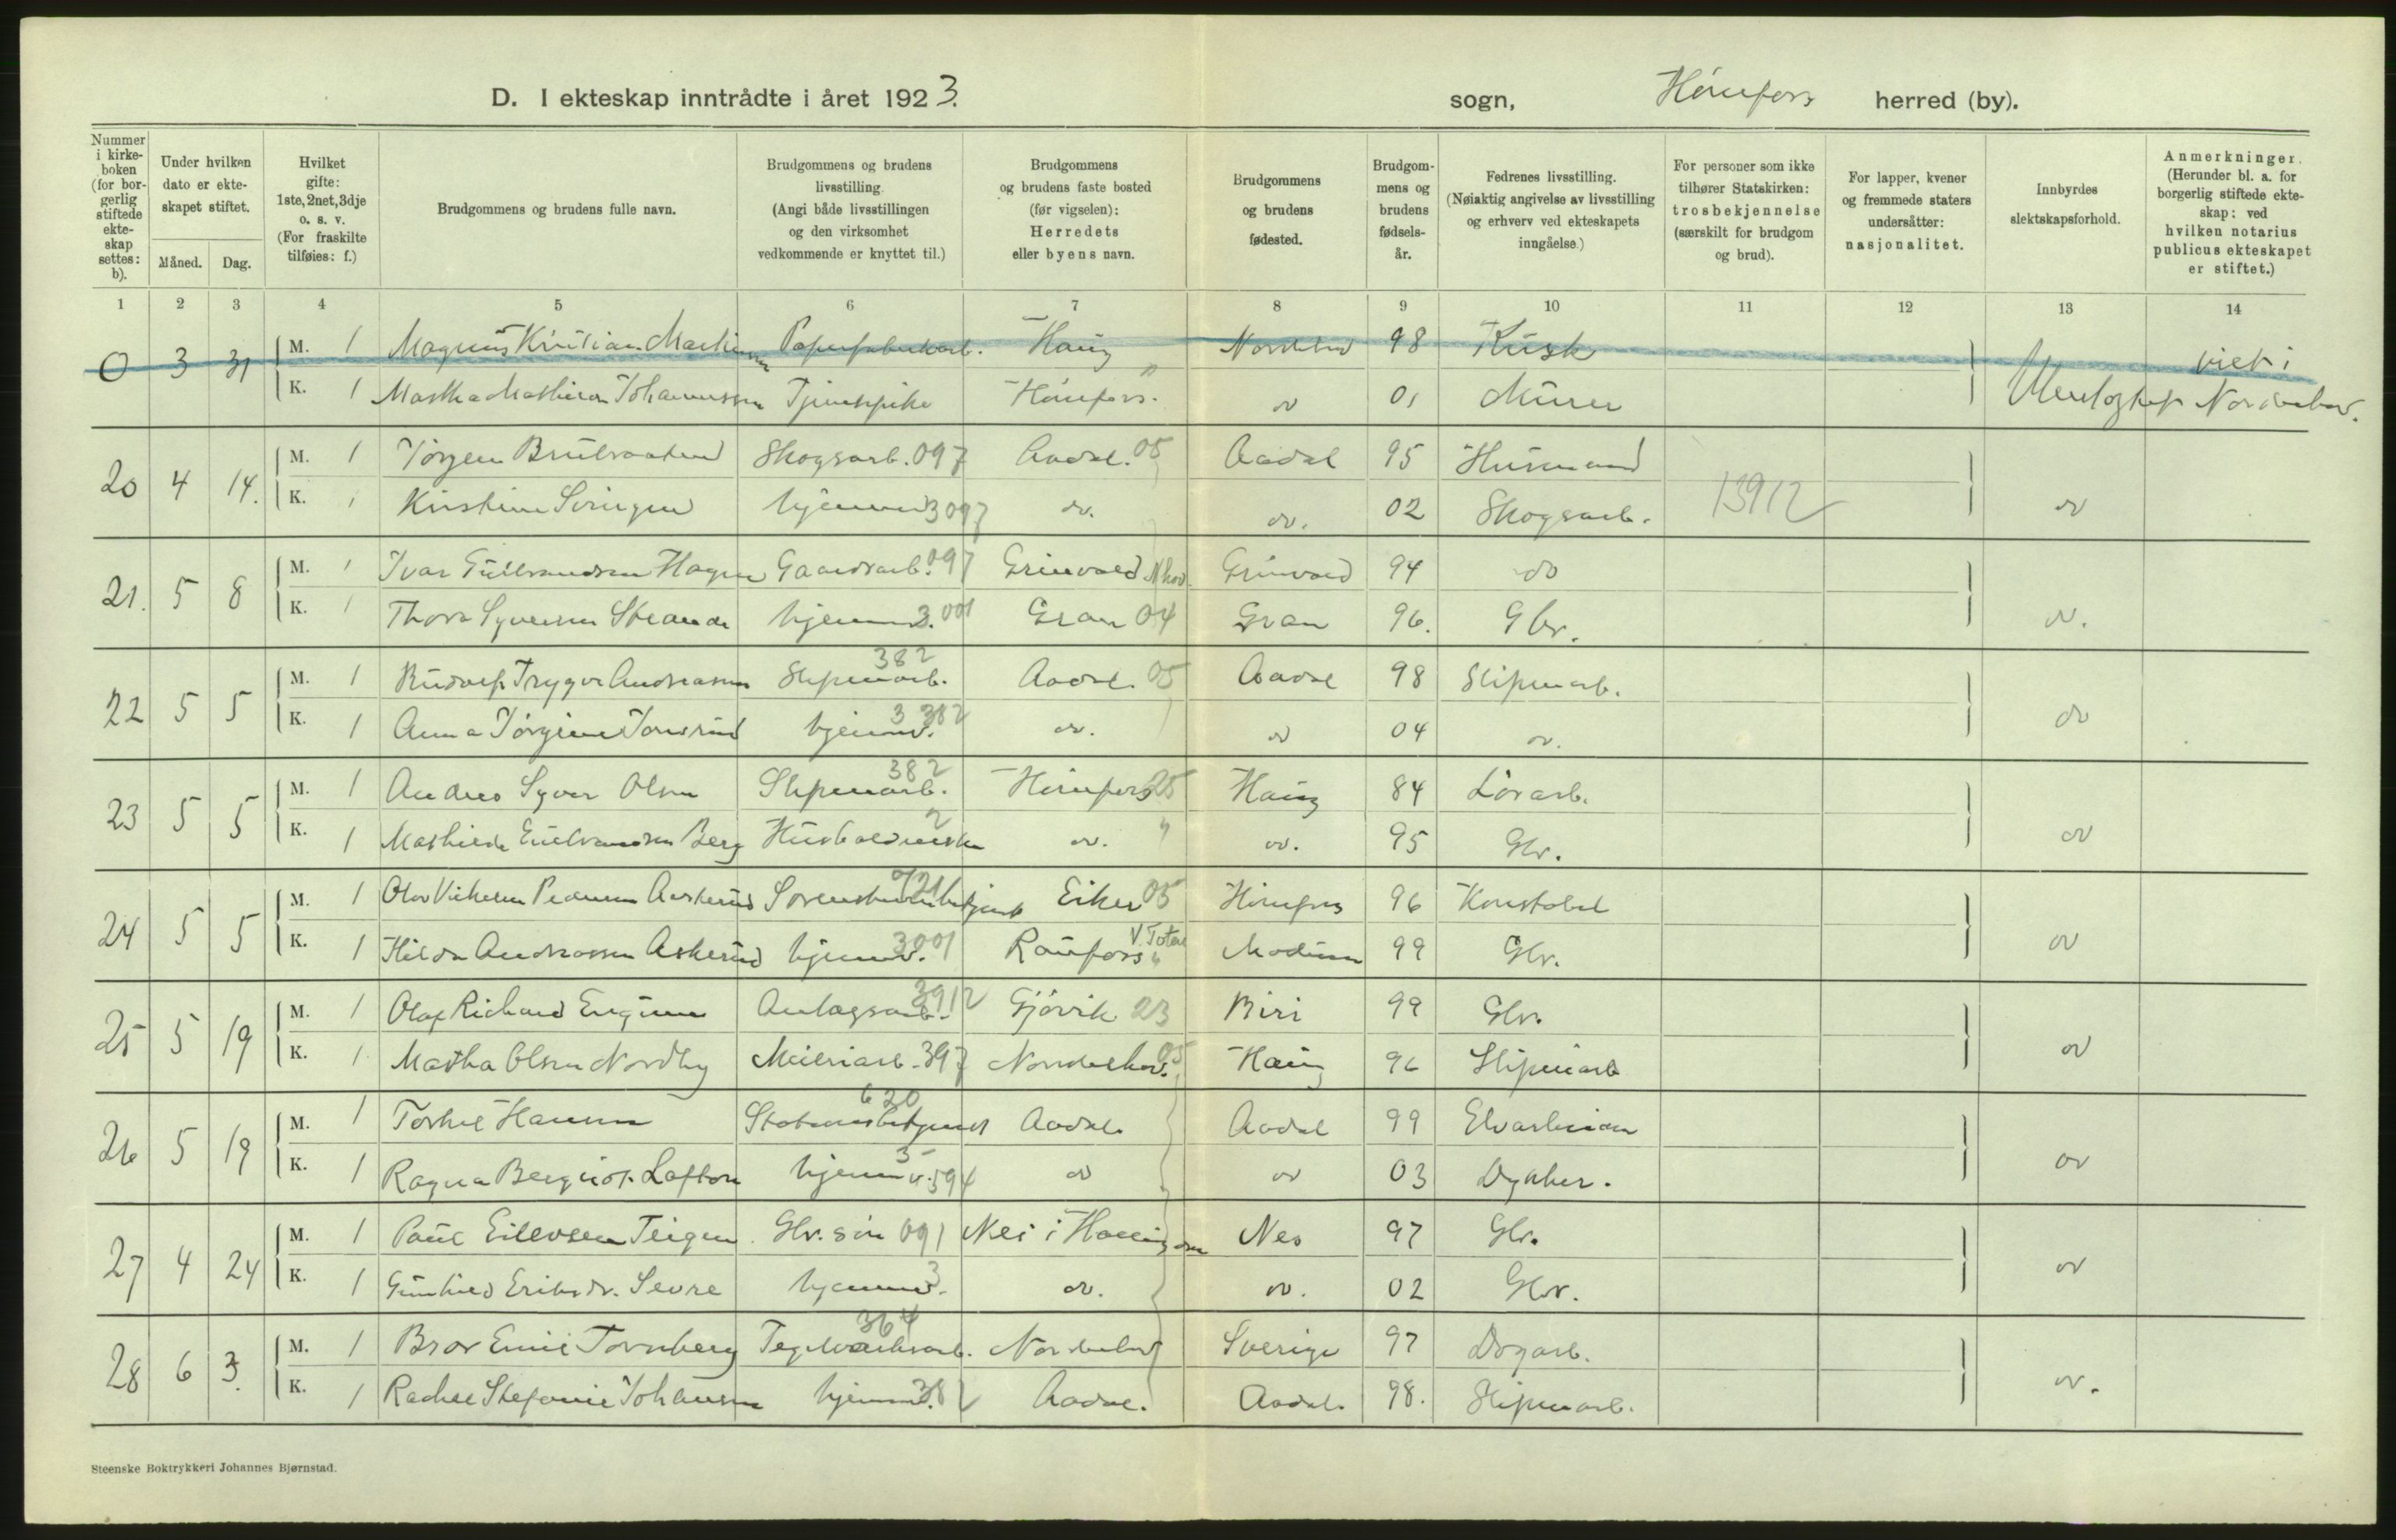 D. I ekteskap inntrådte i året 1923.
sogn, Hønefoss herred (by).
Nummer i kirkeboken (for borgerlig stiftede ekteskap settes: b).
Under hvilken dato er ekteskapet stiftet.
Måned. Dag.
Hvilket gifte: 1ste, 2net, 3dje o. s. v. (For fraskilte tilføies: f.)
Brudgommens og brudens fulle navn.
Brudgommens og brudens livsstilling. (Angi både livsstillingen og den virksomhet vedkommende er knyttet til.)
Brudgommens og brudens faste bosted (før vigselen): Herredets eller byens navn.
Brudgommens og brudens fødested.
Brudgommens og brudens fødselsår.
Fedrenes livsstilling. (Nøiaktig angivelse av livsstilling og erhverv ved ekteskapets inngåelse.)
For personer som ikke tilhører Statskirken: trosbekjennelse (særskilt for brudgom og brud).
For lapper, kvener og fremmede staters undersåtter: nasjonalitet.
Innbyrdes slektskapsforhold.
Anmerkninger. (Herunder bl. a. for borgerlig stiftede ekteskap: ved hvilken notarius publicus ekteskapet er stiftet.)
1 2 3 4 5 6 7 8 9 10 11 12 13 14
0 3 31 M. 1 Magnus Kristian Haug 98 Kusk viet i
K. 1 Martha Johannessen Tjenestpike Hønefoss. do 01 Murer
20 4 14. M. 1 Jørgen Skogsarb. 097 Aadal. 05 Aadal 95 Husmand
K. 1 hjemme 3 097 do. do. 02 Skogsarb. 13912 do
21. 5 8 M. 1 Ivar Gulbrandsen Hagen Gaardsarb. 097 94 do
K. 1 Thora Syversen Strande hjemme 3.001 Gran 04 Gran 96. Gbr. do.
22 5 5 M. 1 Rudolf Trygve Andreassen Sliperiarb. 382 Aadal. 05 Aadal 98 Sliperiarb.
K. 1 Anna Jørgine hjemmev. 3 382 do. do 04 do. do
23 5 5 M. 1 Anders Syver Olsen Sliperiarb. 382 Hønefoss 25 Haug 84 Løsarb.
K. 1 Mathilde Berg 2 do. " do. 95 Gbr. do
24 5 5 M. 1 Olav 721 Eiker 05 Hønefoss 96 Konstabel
K. 1 Hilda Andreassen Askerud hjemmev. 3001 Raufoss V. Toten Modum 99 Gbr. do
25 5 19 M. 1 Olaf Richard Engum Anlagsarb. 3912 Gjøvik 23 Biri 99 Gbr.
K. 1 Martha Olsen Nordby Meieriarb. 397 Norderhov. 05 Haug 96 Sliperiarb do
26 5 19 M. 1 Torkel Hansen Stationsbetjent 620 Aadal. Aadal 99 Elvarbeider
K. 1 Ragna hjemmev. 3 594 do do 03 Dykker. do
27 4 24 M. 1 Paul Teigen Gbr. søn 091 Nes i Hallingdal Nes 97 Gbr.
K. 1 Gunhild Eriksdr. Sevre hjemmev. 3 do. do. 02 Gbr. do
28 6 3. M. 1 Bror Emil Tornberg Teglverksarb. 364 Norderhov Sverige 97 Dagarb.
K. 1 Rachel Stefanie Johansen hjemmev. 382 Aadal. Aadal. 98. Sliperiarb. do.
Steenske Boktrykkeri Johannes Bjørnstad.